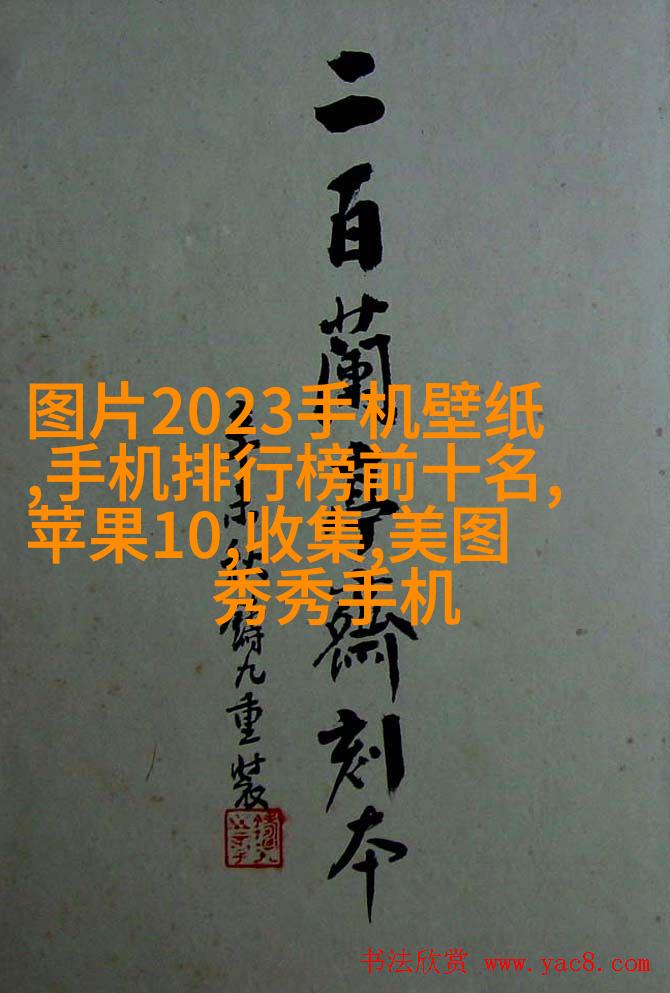 二百蘭亭齋刻本
九重裝
图片2023手机壁纸
,手机排行榜前十名,
苹果10,收集,美图
秀秀手机
书法欣赏 www.yac8.com